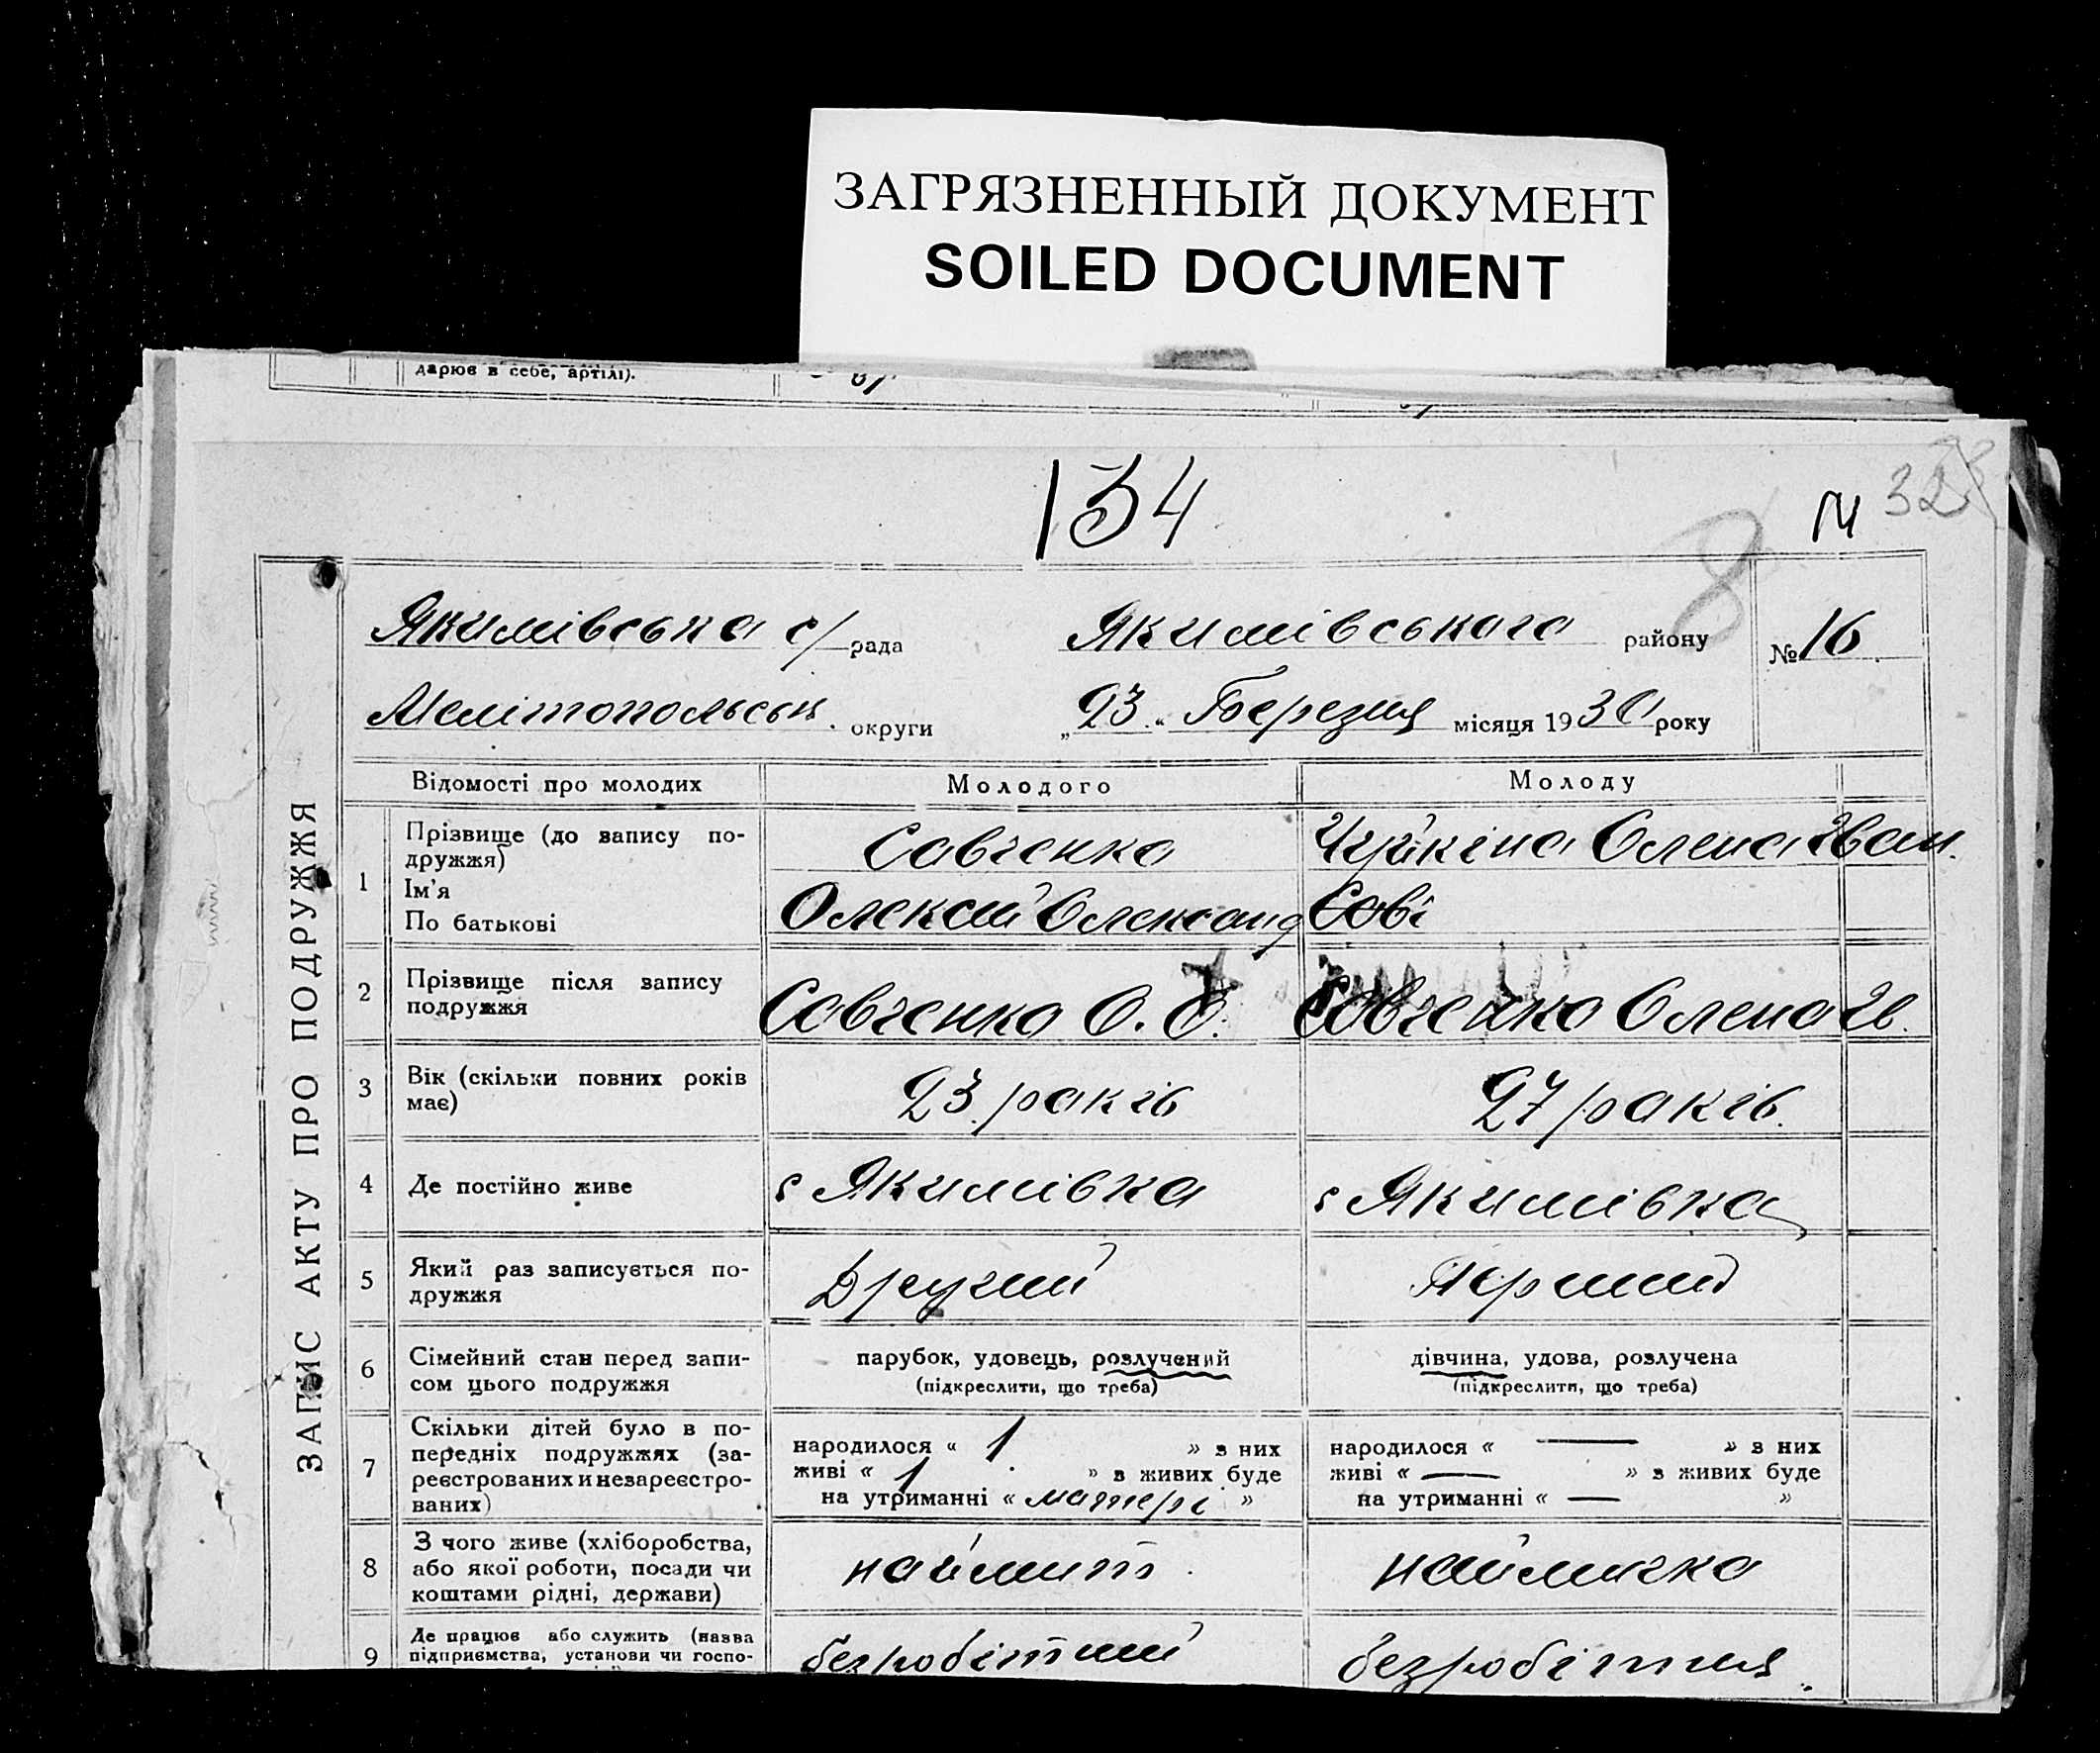 ЗАГРЯЗНЕННЫЙ ДОКУМЕНТ
SOILED DOCUMENT
дарює в себе, артілі).
134
32
8
ЗАПИС АКТУ ПРО ПОДРУЖЖЯ
Якимівська с/рада Якимівського району №16
Мелітопольськ. округи „23“ Березня місяця 1930 року
Відомості про молодих Молодого Молоду
1 Прізвище (до запису по-
дружжя)
Ім'я
По батькові
Савченко
Олексій Олександ
Олена Иван.
2 Прізвище після запису
подружжя
Савченко О. О. Савченко Олена Ив.
3 Вік (скільки повних років
має)
23 раків 27 раків.
4 Де постійно живе с Якимівка с Якимівка
5 Який раз записується по-
дружжя
Другий Перший
6 Сімейний стан перед запи-
сом цього подружжя
парубок, удовець, розлучений
(підкреслити, що треба)
дівчина, удова, розлучена
(підкреслити, що треба)
7 Скільки дітей було в по-
передніх подружжях (за-
реєстрованих и незареєстро-
ваних)
народилося « 1 » з них
живі « 1 » з живих буде
на утриманні « матері »
народилося « — » з них
живі « — » з живих буде
на утриманні « — »
8 З чого живе (хліборобства,
або якої роботи, посади чи
коштами рідні, держави)
наймит. наймичка
9 Де працює або служить (назва
підприємства, установи чи госпо-
безробітний безробітня.